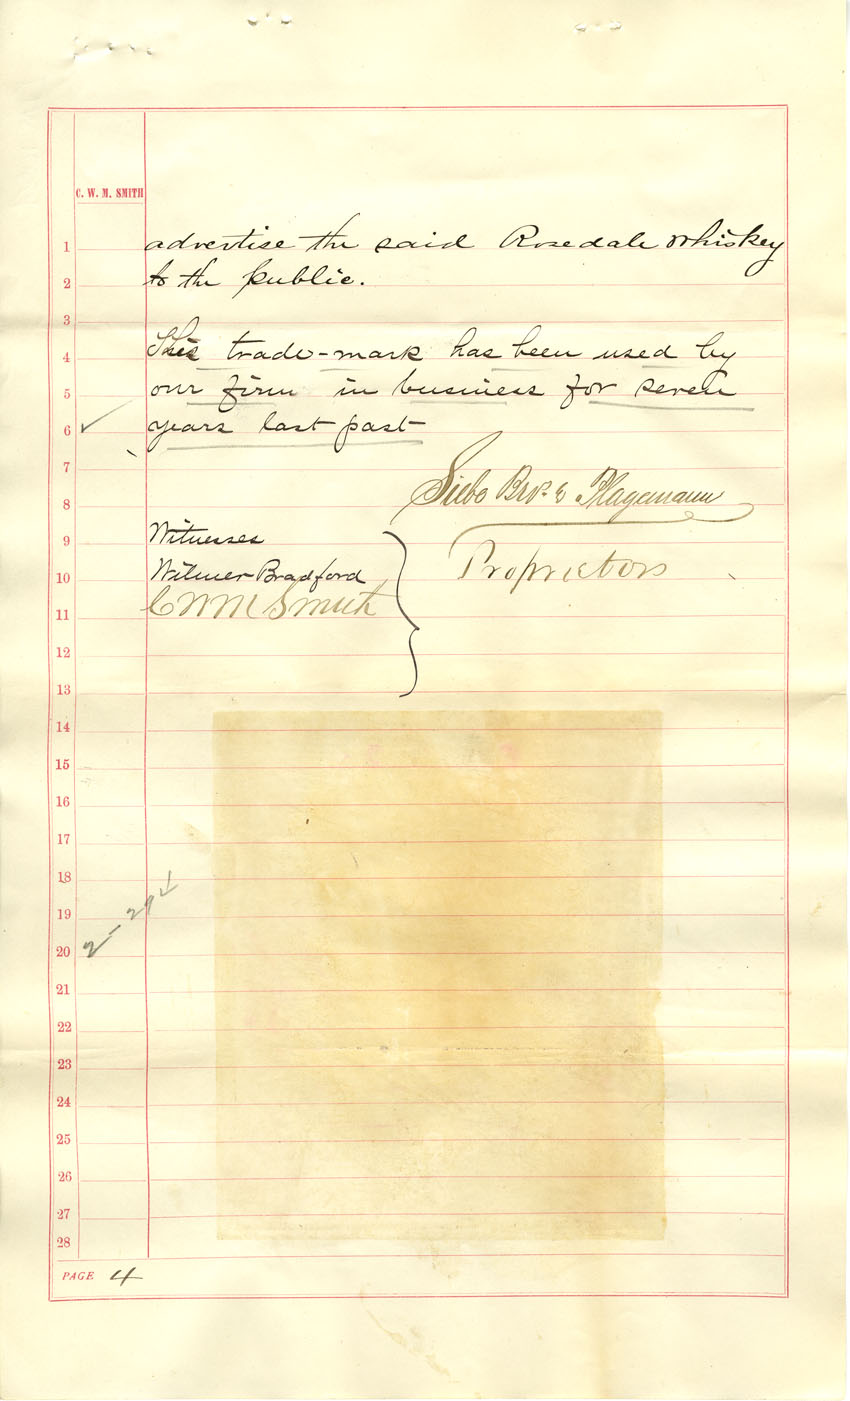 C. W. M. SMITH
1 advertise the said Rosedale Whiskey
2 to the public.
3
4 This trade-mark has been used by
5 our firm in business for seven
6 years last past
7
8 Siebe Bros. & Plagemann
9 Witnesses
10 Wilmer Bradford Proprietors
11 C W M Smith
12
13
14
15
16
17
18
19
20
21
22
23
24
25
26
27
28
PAGE 4